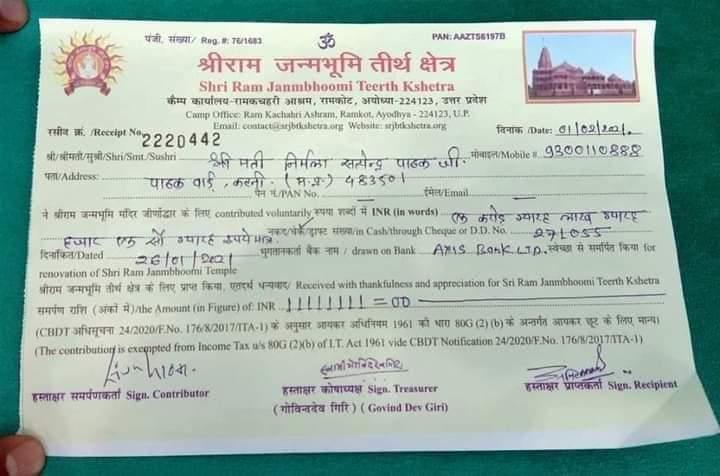 पंजी. संख्या/ Reg. #: 76/1683 ॐ PAN: AAZTS6197B
श्रीराम जन्मभूमि तीर्थ क्षेत्र
Shri Ram Janmbhoomi Teerth Kshetra
कैम्प कार्यालय-रामकचहरी आश्रम, रामकोट, अयोध्या-224123, उत्तर प्रदेश
Camp Office: Ram Kachahri Ashram, Ramkot, Ayodhya - 224123, U.P.
Email: contact@srjbtkshetra.org Website: srjbtkshetra.org
रसीद क्रं. /Receipt No. 2220442 दिनांक /Date: 01/02/2021.
श्री/श्रीमती/सुश्री/Shri/Smt./Sushri श्री मती निर्मला सत्येन्द्र पाठक जी. मोबाइल/Mobile # 9300110888
पता/Address: पाठक वार्ड, कटनी. (म.प्र.) 483501
पेन नं./PAN No. ईमेल/Email
ने श्रीराम जन्मभूमि मंदिर जीर्णोद्धार के लिए contributed voluntarily रुपया शब्दों में INR (in words) एक करोड़ ग्यारह लाख ग्यारह
हजार एक सौ ग्यारह रुपये मात्र. नकद/चेक/ड्राफ्ट संख्या/in Cash/through Cheque or D.D. No. 271055
दिनांकित/Dated 26/01/2021 भुगतानकर्ता बैंक नाम / drawn on Bank AXIS BANK LTD. स्वेच्छा से समर्पित किया for
renovation of Shri Ram Janmbhoomi Temple
श्रीराम जन्मभूमि तीर्थ क्षेत्र के लिए प्राप्त किया, एतदर्थ धन्यवाद/ Received with thankfulness and appreciation for Sri Ram Janmbhoomi Teerth Kshetra
समर्पण राशि (अंकों में)/the Amount (in Figure) of: INR 11111111=00
(CBDT अधिसूचना 24/2020/F.No. 176/8/2017/ITA-1) के अनुसार आयकर अधिनियम 1961 की धारा 80G (2) (b) के अन्तर्गत आयकर छूट के लिए मान्य)
(The contribution is exempted from Income Tax u/s 80G (2)(b) of I.T. Act 1961 vide CBDT Notification 24/2020/F.No. 176/8/2017/ITA-1)
हस्ताक्षर समर्पणकर्ता Sign. Contributor हस्ताक्षर कोषाध्यक्ष Sign. Treasurer हस्ताक्षर प्राप्तकर्ता Sign. Recipient
(गोविन्ददेव गिरि) ( Govind Dev Giri)